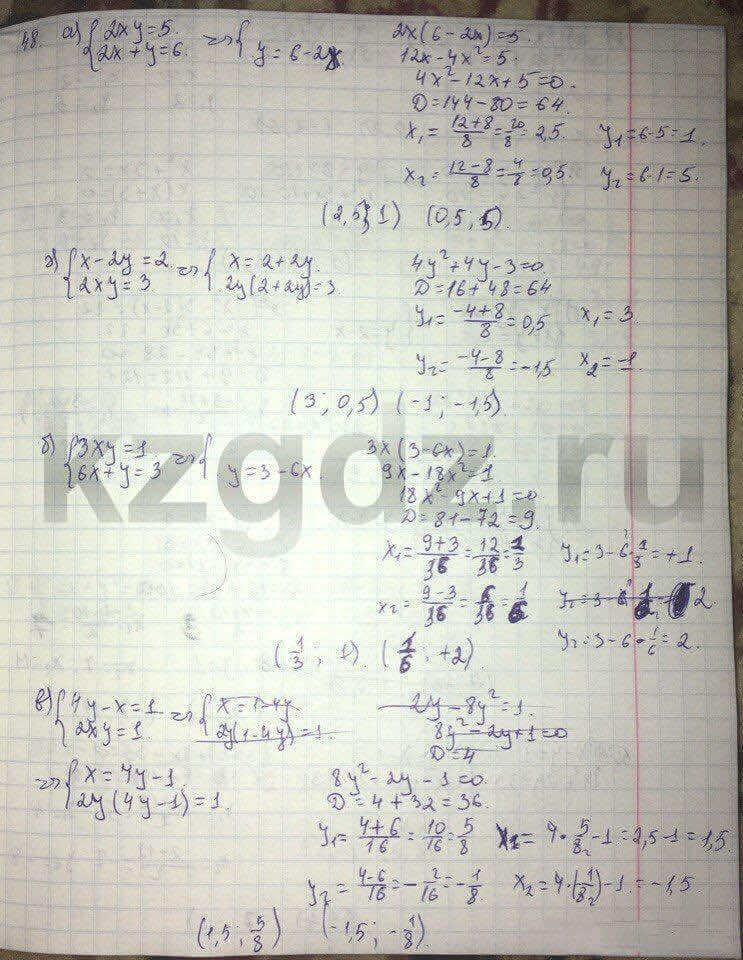 48. а) { 2xy = 5. 2x + y = 6. => { y = 6 - 2x
2x(6 - 2x) = 5.
12x - 4x² = 5.
4x² - 12x + 5 = 0.
D = 144 - 80 = 64.
x₁ = (12 + 8)/8 = 20/8 = 2,5. y₁ = 6 - 5 = 1.
x₂ = (12 - 8)/8 = 4/8 = 0,5. y₂ = 6 - 1 = 5.
(2,5; 1) (0,5; 5).
г) { x - 2y = 2. 2xy = 3 => { x = 2 + 2y. 2y(2 + 2y) = 3.
4y² + 4y - 3 = 0
D = 16 + 48 = 64
y₁ = (-4 + 8)/8 = 0,5 x₁ = 3.
y₂ = (-4 - 8)/8 = -1,5 x₂ = -1.
(3; 0,5) (-1; -1,5).
б) { 3xy = 1. 6x + y = 3 => { y = 3 - 6x.
3x(3 - 6x) = 1.
9x - 18x² = 1
18x² - 9x + 1 = 0
D = 81 - 72 = 9.
x₁ = (9 + 3)/36 = 12/36 = 1/3 y₁ = 3 - 6 · 1/3 = +1.
x₂ = (9 - 3)/36 = 6/36 = 1/6
y₂ = 3 - 6 · 1/6 = 2.
(1/3; 1). (1/6; +2).
в) { 4y - x = 1 2xy = 1. => { x = 1 - 4y 2y(1 - 4y) = 1.
2y - 8y² = 1.
8y² - 2y + 1 = 0
D = 4
=> { x = 4y - 1 2y(4y - 1) = 1.
8y² - 2y - 1 = 0.
D = 4 + 32 = 36.
y₁ = (4 + 6)/16 = 10/16 = 5/8 x₁ = 4 · 5/8 - 1 = 2,5 - 1 = 1,5.
y₂ = (4 - 6)/16 = -2/16 = -1/8. x₂ = 4 · (1/8) - 1 = -1,5
(1,5; 5/8) (-1,5; -1/8).
kzgdz.ru